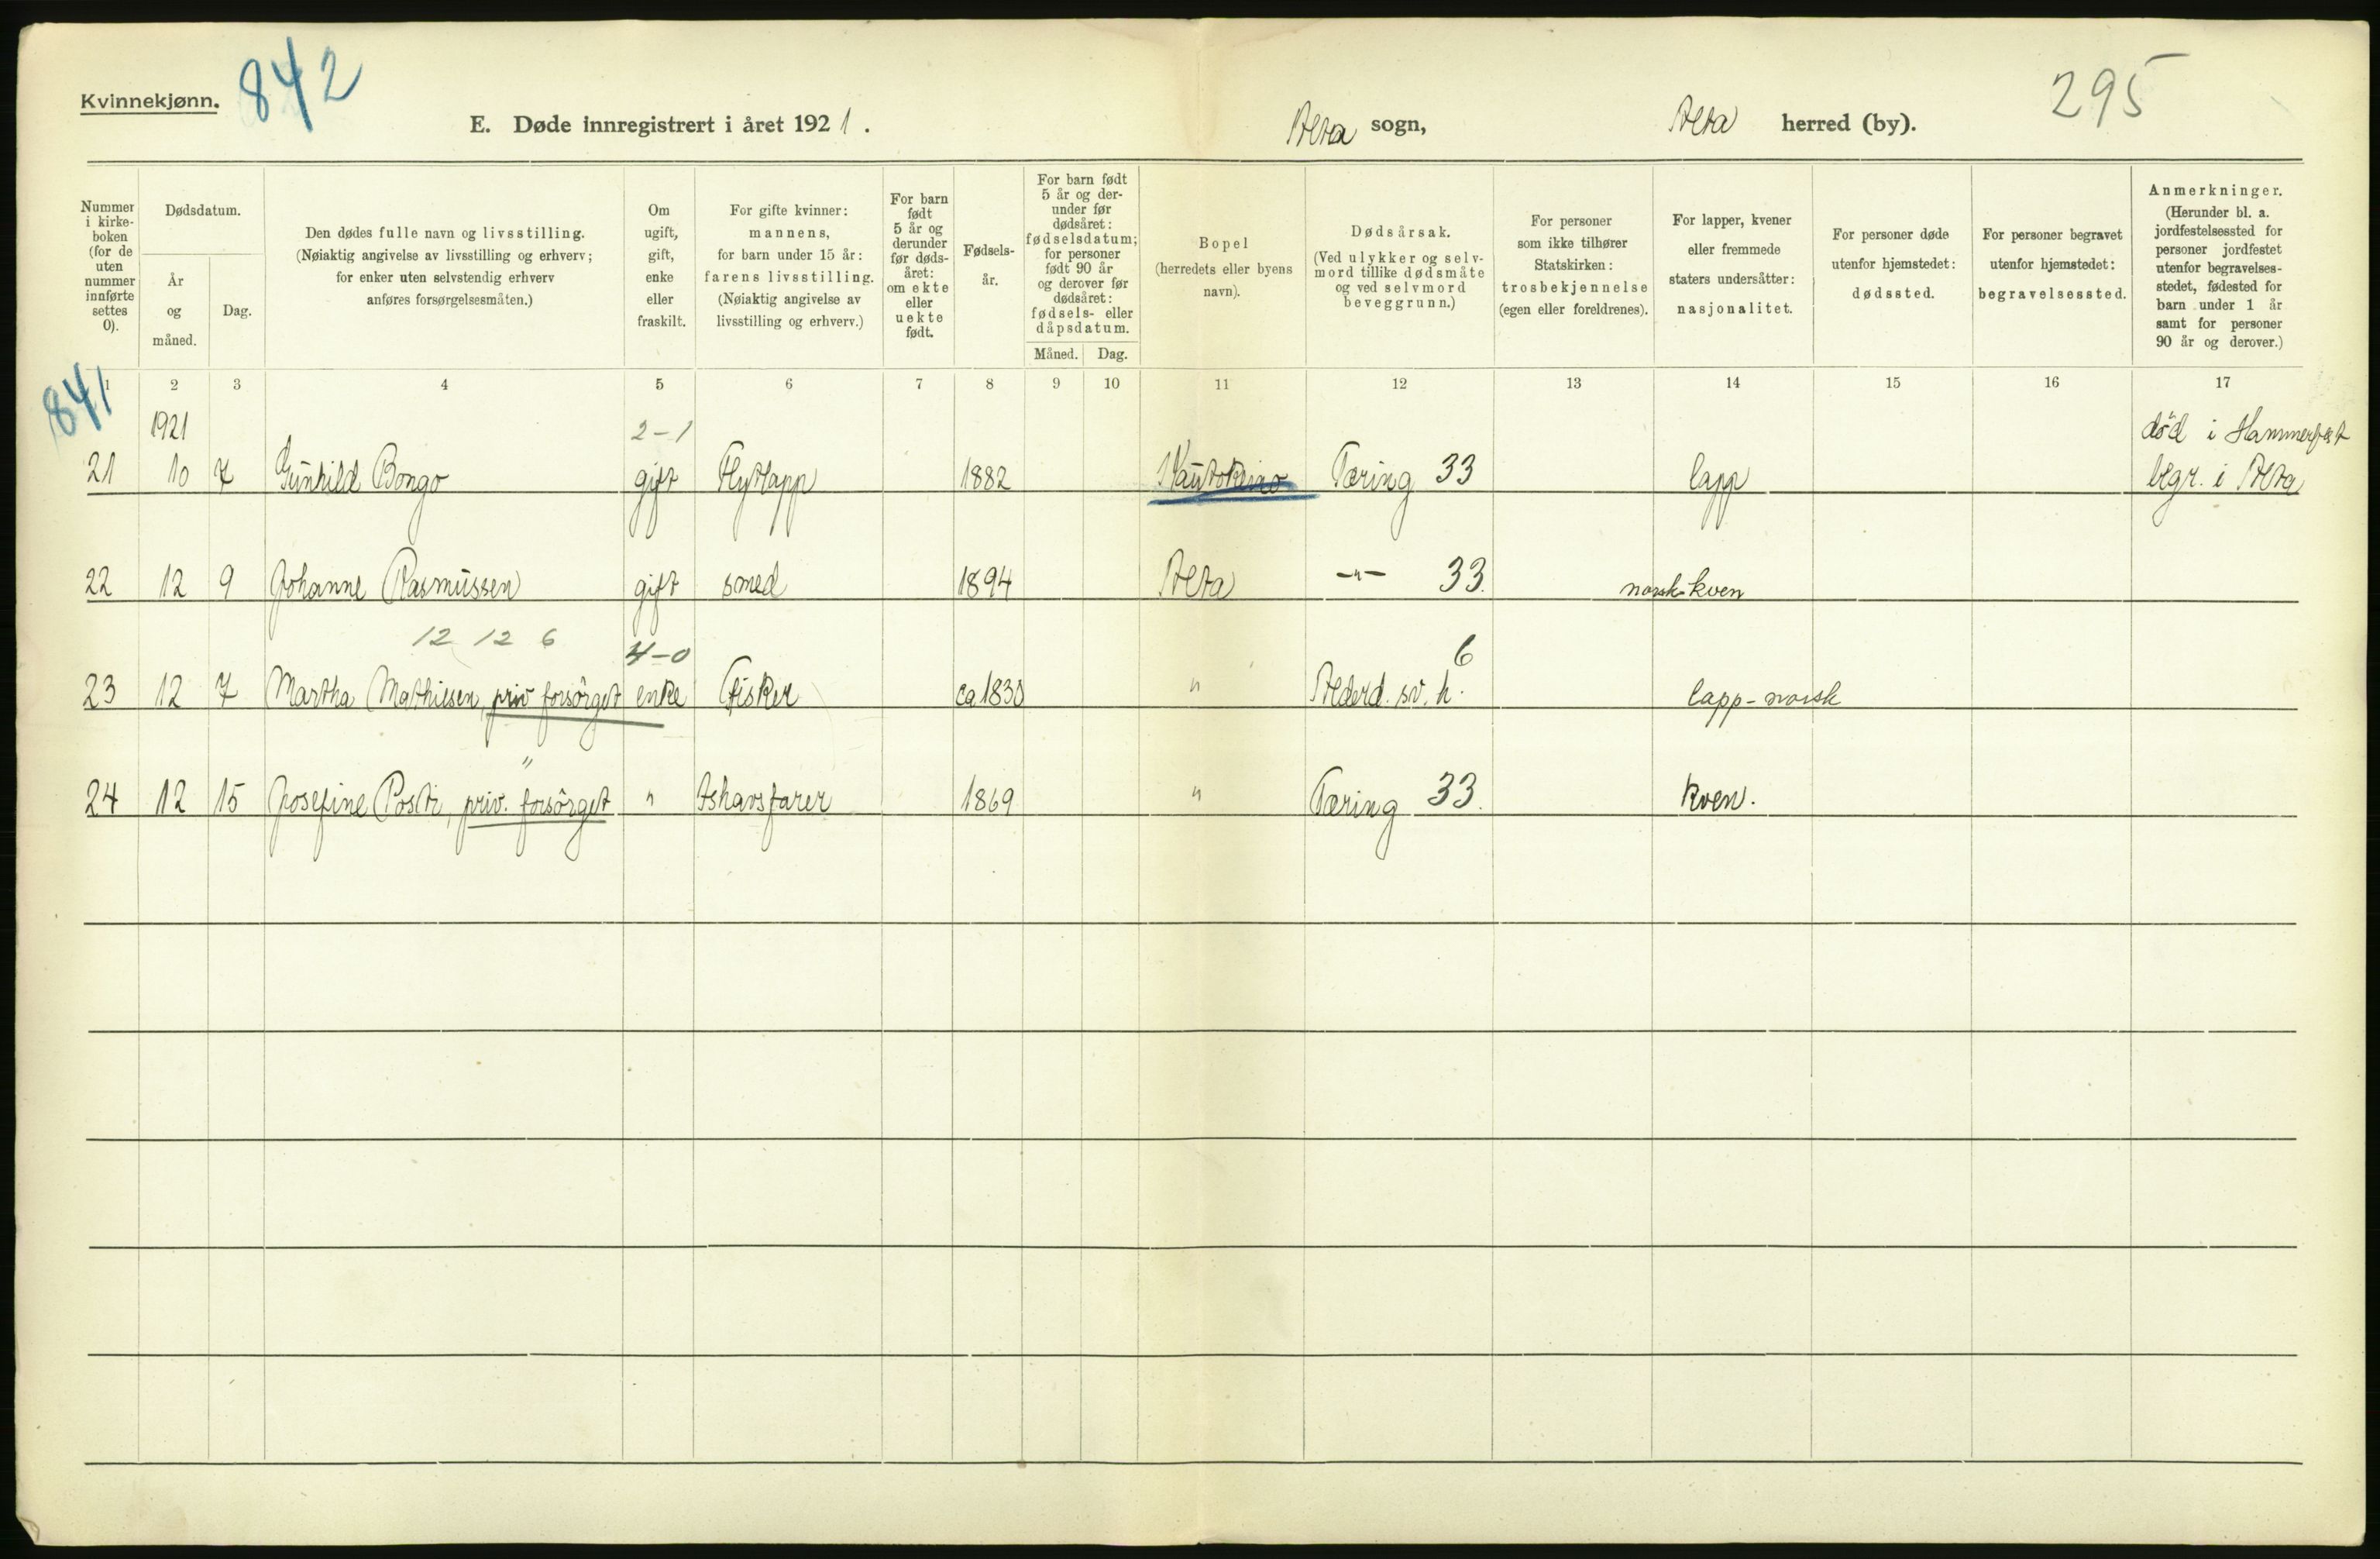 Kvinnekjønn. 842
295
E. Døde innregistrert i året 1921. Alta sogn, Alta herred (by).
Nummer i kirke-boken (for de uten nummer innførte settes 0).
Dødsdatum.
År og måned.
Dag.
Den dødes fulle navn og livsstilling.
(Nøiaktig angivelse av livsstilling og erhverv;
for enker uten selvstendig erhverv
anføres forsørgelsesmåten.)
Om ugift, gift, enke eller fraskilt.
For gifte kvinner:
mannens,
for barn under 15 år:
farens livsstilling.
(Nøiaktig angivelse av
livsstilling og erhverv.)
For barn født 5 år og derunder før døds-året: om ekte eller uekte født.
Fødsels-år.
For barn født
5 år og der-
under før
dødsåret:
fødselsdatum;
for personer
født 90 år
og derover før
dødsåret:
fødsels- eller
dåpsdatum.
Måned. Dag.
Bopel
(herredets eller byens
navn).
Dødsårsak.
(Ved ulykker og selv-
mord tillike dødsmåte
og ved selvmord
beveggrunn.)
For personer
som ikke tilhører
Statskirken:
trosbekjennelse
(egen eller foreldrenes).
For lapper, kvener
eller fremmede
staters undersåtter:
nasjonalitet.
For personer døde
utenfor hjemstedet:
dødssted.
For personer begravet
utenfor hjemstedet:
begravelsessted.
Anmerkninger.
(Herunder bl. a.
jordfestelsessted for
personer jordfestet
utenfor begravelses-
stedet, fødested for
barn under 1 år
samt for personer
90 år og derover.)
841
1 2 3 4 5 6 7 8 9 10 11 12 13 14 15 16 17
1921 2-1 død i Hammerfest
21 10 7 Gunhild Bongo gift Flytlapp 1882 Kautokeino Tæring 33 lapp begr. i Alta
22 12 9 Johanne Rasmussen gift smed 1894 Alta -"- 33. norsk-kven
12 12 6 4-0 6
23 12 7 Martha Mathiesen, priv forsörget enke Fisker ca 1830 " Alderd. sv. h. lapp-norsk
"
24 12 15 Josefine Posti, priv. forsörget " Ishavsfarer 1869 " Tæring 33. Kven.